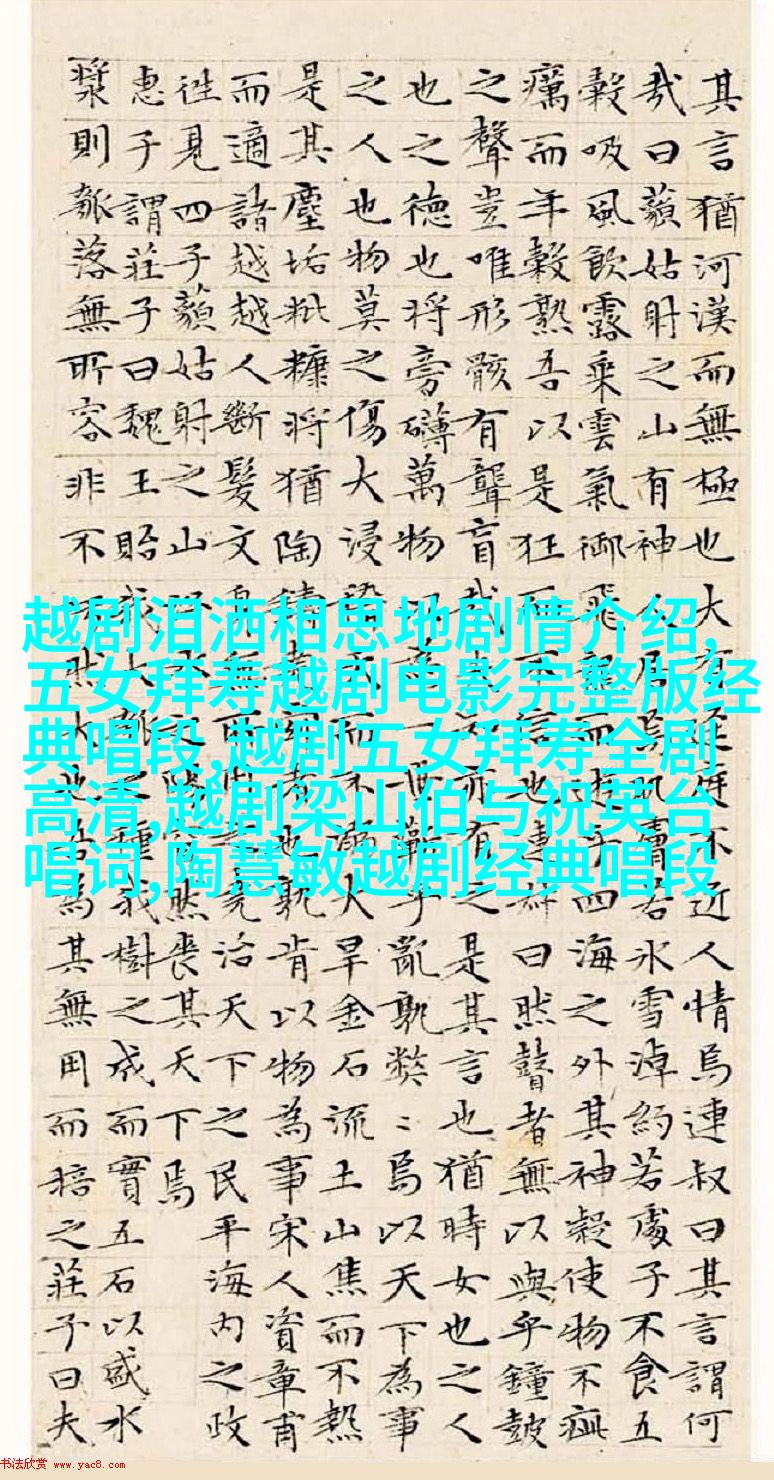 其言猶河漢而無極也大有庭不近人情焉連叔曰其言謂何
哉曰藐姑射之山有神人居焉肌膚若冰雪淖約若處子不食五
穀吸風飲露乘雲氣御飛而遊乎四海之外其神凝使物不疵
癘而年穀熟吾以是狂而不信也連叔曰然瞽者無以與乎鐘鼓
之聲豈唯形骸有聾盲哉亦有之是其言也猶時女也之人
也之德也將旁礴萬物以一世蘄乎亂孰弊〻焉以天下為事
之人也物莫之傷大浸而不溺大旱金石流土山焦而不熱
是其塵垢粃糠將猶陶鑄者也孰肯以物為事宋人資章甫
而適諸越越人斷髮文身無所堯治天下之民平海內之政
往見四子藐姑射之山水之然喪其天下焉
惠子謂莊子曰魏王貽我大之種我樹之成而實五石以盛水
漿則瓠落無所容非不然大也吾為其無用而掊之莊子曰夫
越剧泪洒相思地剧情介绍,
五女拜寿越剧电影完整版经
典唱段,越剧五女拜寿全剧
高清,越剧梁山伯与祝英台
唱词,陶慧敏越剧经典唱段
书法欣赏 www.yac8.com